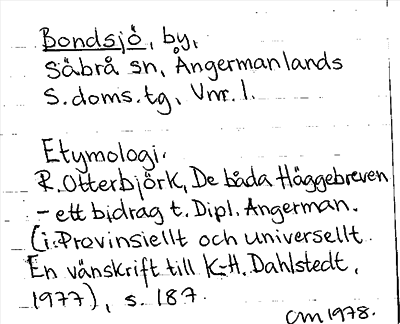 Bondsjö, by,
Säbrå sn, Ångermanlands
S. doms. tg, Vnr. 1.
Etymologi.
R. Otterbjörk, De båda Häggebreven
- ett bidrag t. Dipl. Angerman.
(i: Provinsiellt och universellt.
En vänskrift till K-H. Dahlstedt,
1977), s. 187.
CM 1978.